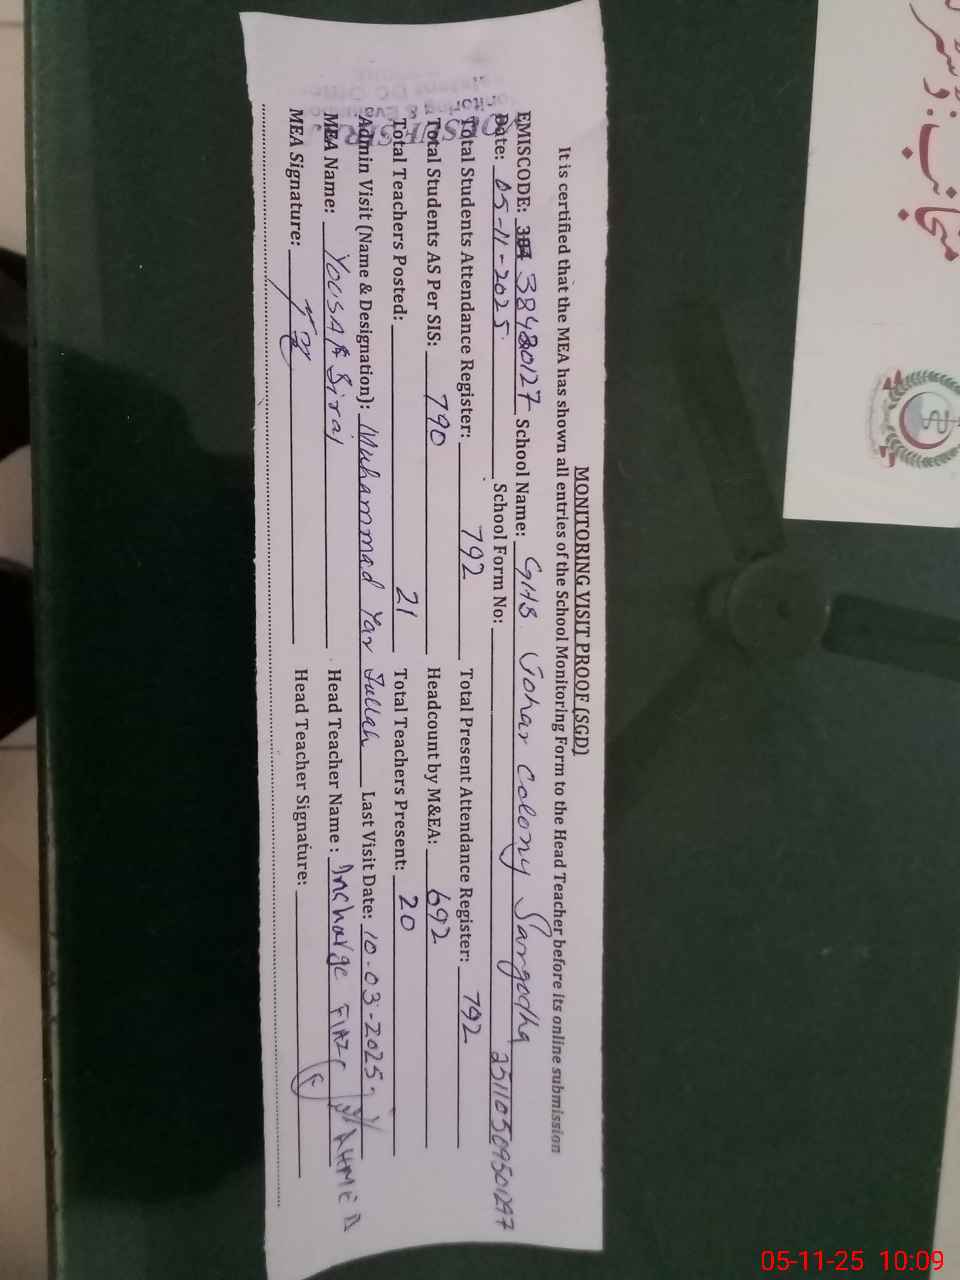 MONITORING VISIT PROOF (SGD)
It is certified that the MEA has shown all entries of the School Monitoring Form to the Head Teacher before its online submission
EMISCODE: 38420127 School Name: GHS Johar Colony Sargodha
Date: 05-11-2025 School Form No: 25110509501297
Total Students Attendance Register: 792 Total Present Attendance Register: 792
Total Students AS Per SIS: 790 Headcount by M&EA: 692
Total Teachers Posted: 21 Total Teachers Present: 20
Admin Visit (Name & Designation): Muhammad Yar Last Visit Date: 10.03-2025
MEA Name: Yousaf Siraj Head Teacher Name : Incharge AHMED
MEA Signature: Head Teacher Signature:
منجانب:
05-11-25 10:09